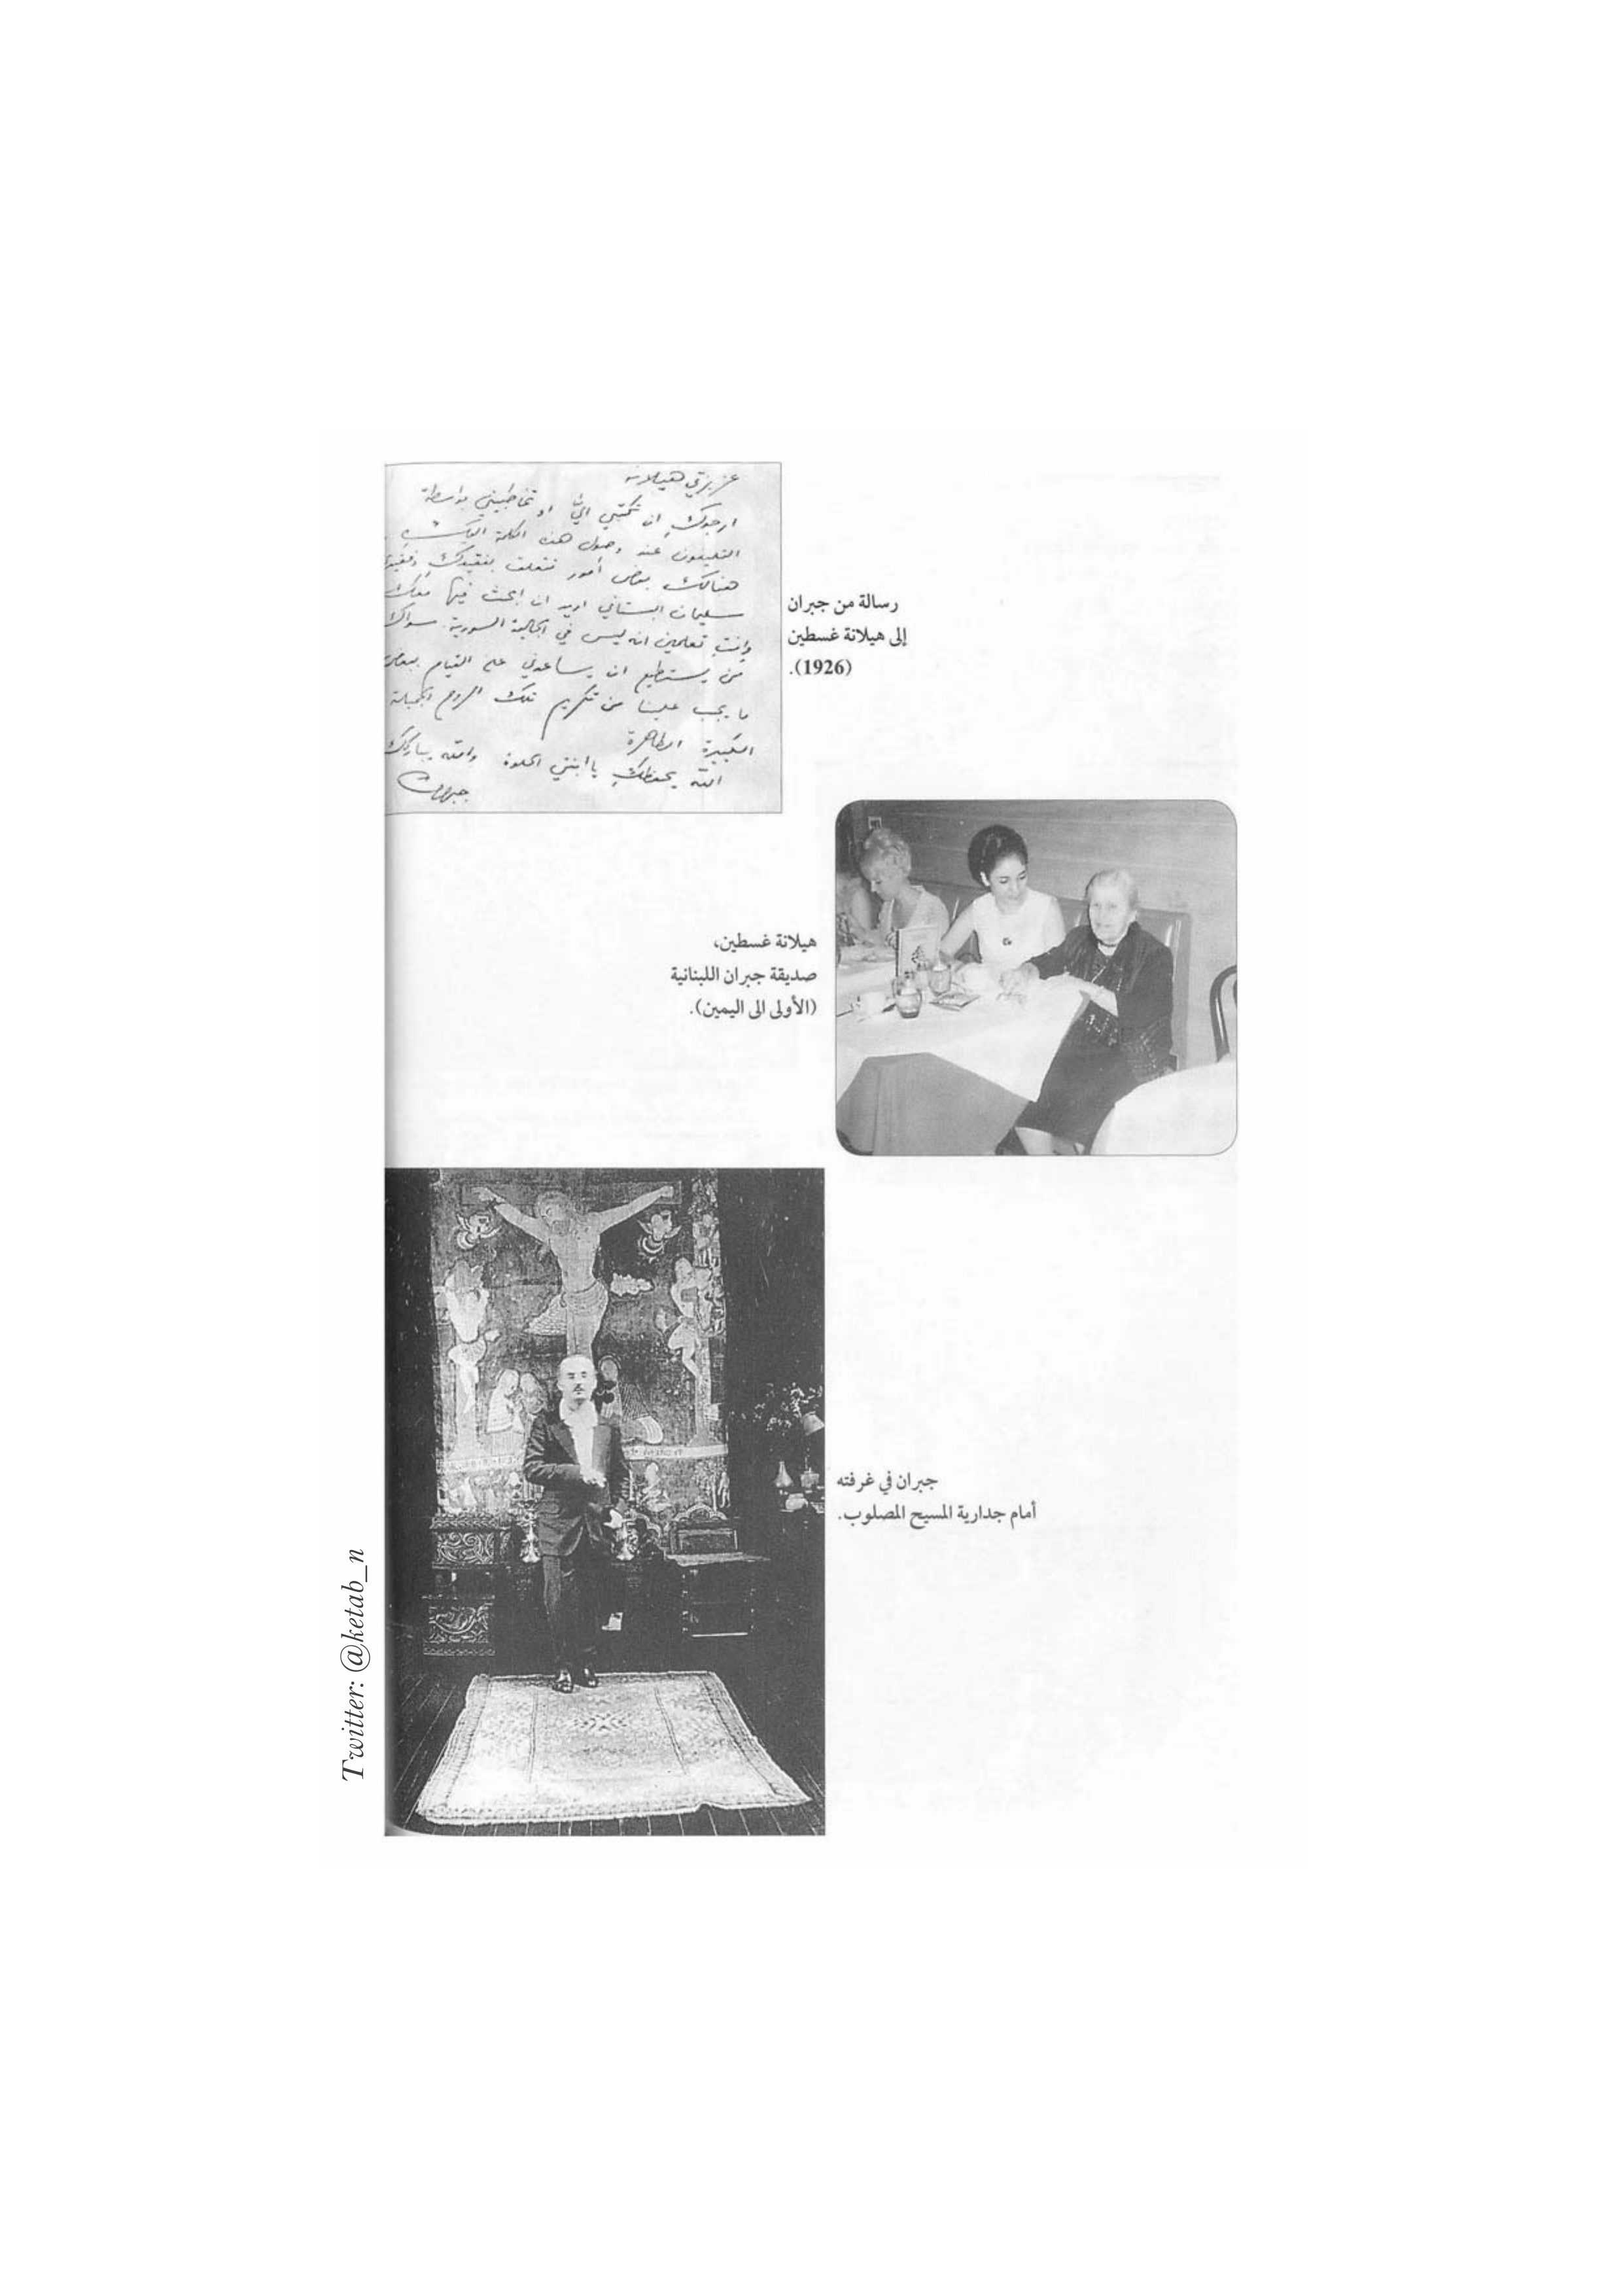 عزيزتي هيلانه
ارجوكِ ان تكتبي اليَّ او تخاطبيني بواسطة
التليفون عند وصول هذه الكلمة اليكِ.
هنالك بعض أمور تتعلق بفقيدك وفقيدنا
سليمان البستاني اريد ان ابحث فيها معك
وانتِ تعلمين انه ليس في الجالية السورية سواك
من يستطيع ان يساعدني على القيام ببعض
ما يجب علينا من تكريم تلك الروح الجميلة
الكبيرة الطاهرة
الله يحفظكِ يا ابنتي الحلوة والله يباركك
جبران
رسالة من جبران
إلى هيلانة غسطين
(1926).
هيلانة غسطين،
صديقة جبران اللبنانية
(الأولى الى اليمين).
جبران في غرفته
أمام جدارية المسيح المصلوب.
Twitter: @ketab_n